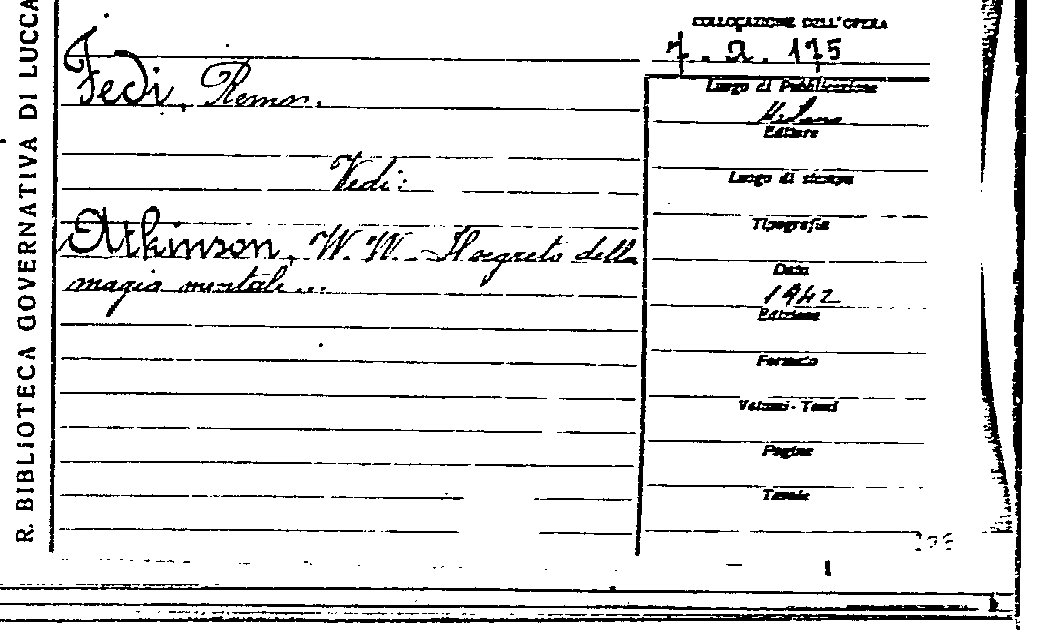 R. BIBLIOTECA GOVERNATIVA DI LUCCA
COLLOCAZIONE DELL'OPERA
7. 2. 175
Fedi, Remo.
Vedi:
Atkinson, W. W. Il segreto della
magia mentale...
Luogo di Pubblicazione
Milano
Editore
Luogo di stampa
Tipografia
Data
1942
Edizione
Formato
Volumi - Tomi
Pagine
Tavole